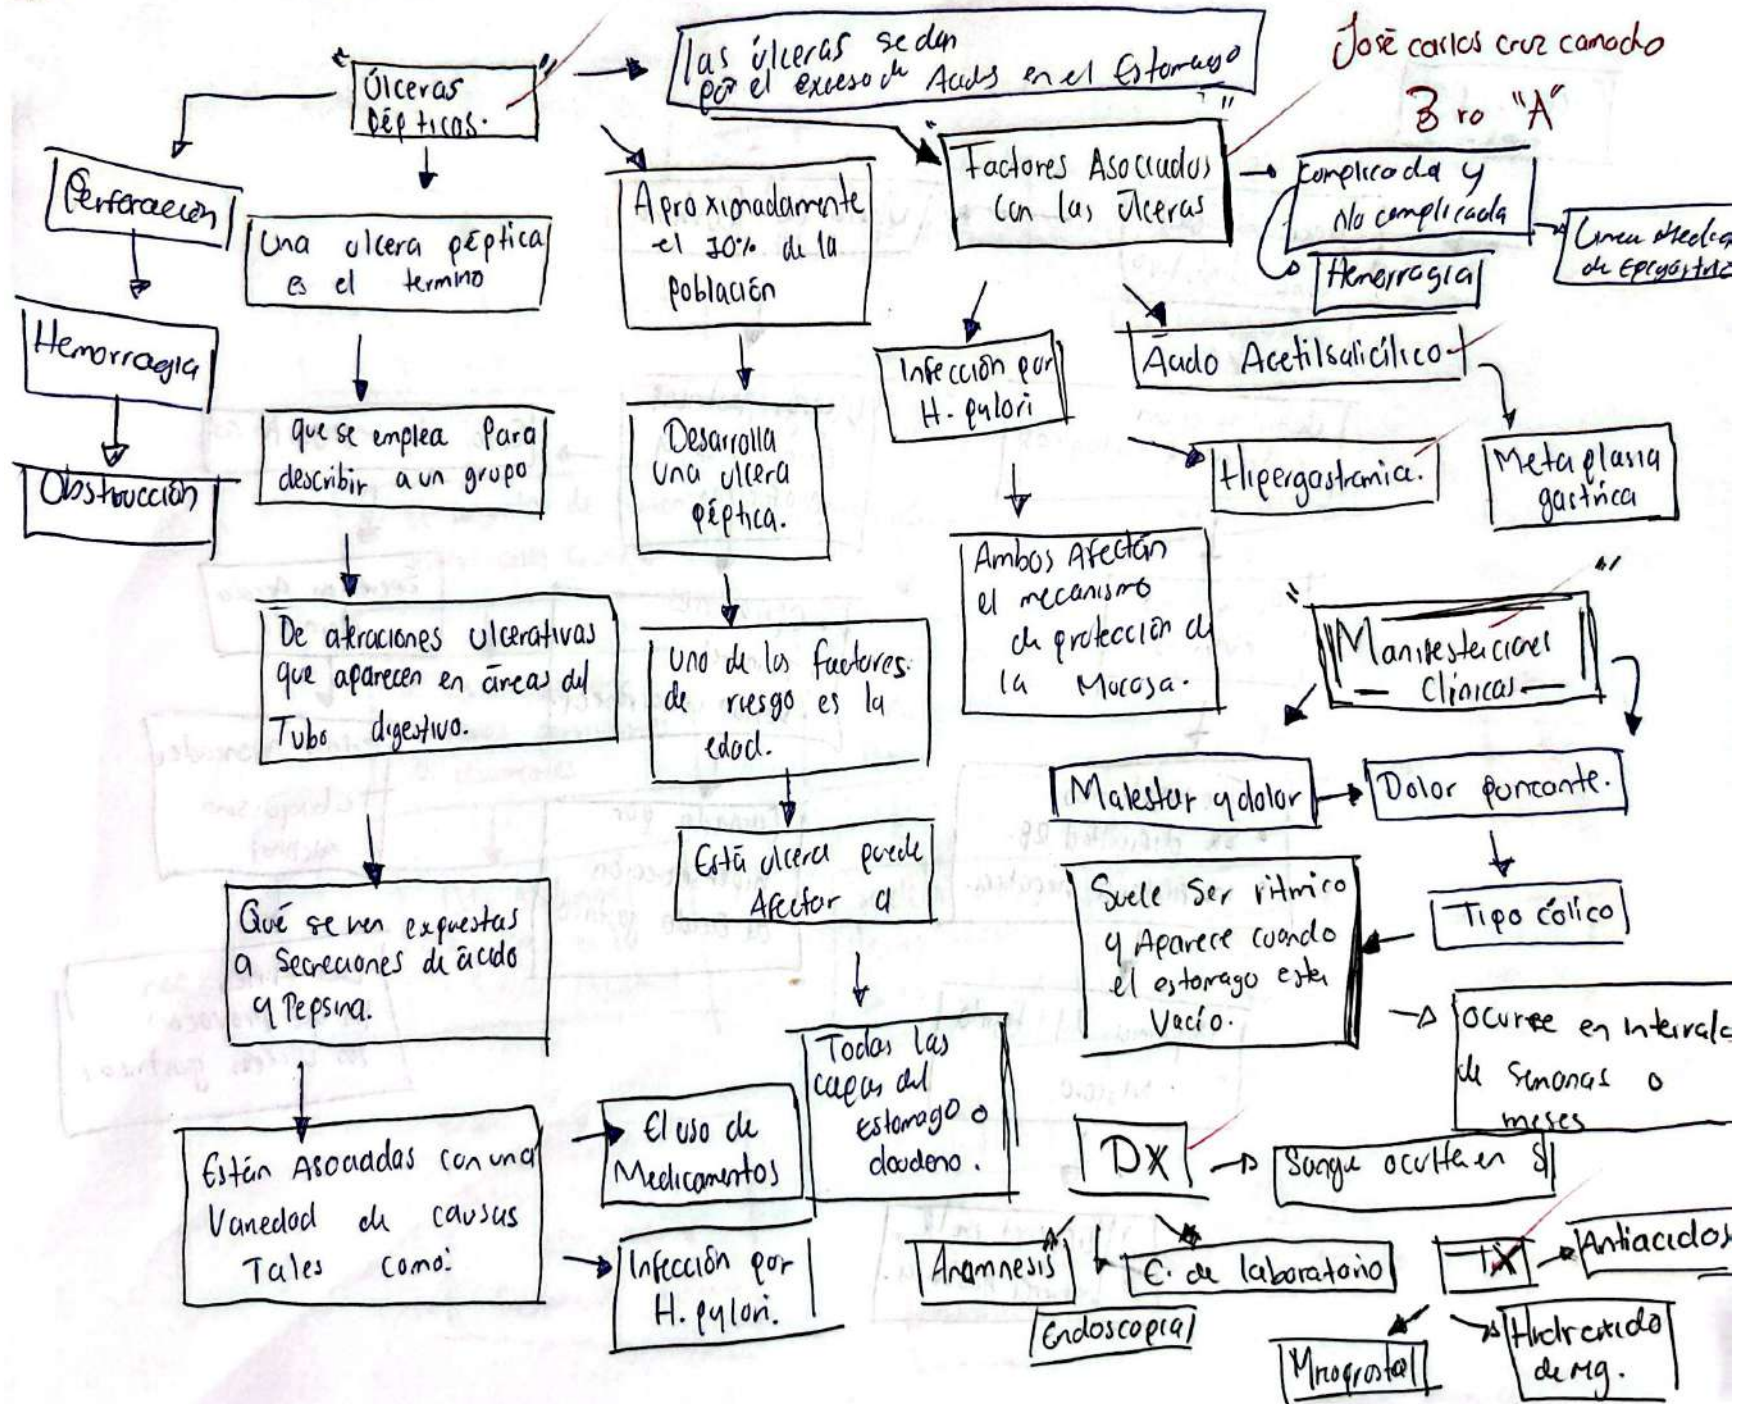 José carlos cruz camacho
3 ro "A"
"Úlceras
pépticas."
las úlceras se dan
por el exceso de Acidos en el Estomago
Perforación
Hemorragia
Obstrucción
Una ulcera péptica
es el termino
que se emplea Para
describir a un grupo
De
ulcerativas
que aparecen en áreas del
Tubo digestivo.
Qué se ven expuestas
a Secreciones de ácido
y Pepsina.
Están Asociadas con una
Variedad de causas
Tales como:
El uso de
Medicamentos
Infección por
H. pylori.
Aproximadamente
el 10% de la
Población
Desarrolla
una ulcera
péptica.
uno de los factores
de riesgo es la
edad.
Está ulcera puede
Afectar a
Todas las
capas del
estomago o
doudeno.
"Factores Asociados
con las Úlceras"
Complicada y
No complicada
Hemorragia
Linea Media
de Epigástrio
Infección por
H. pylori
Ácido Acetilsalicílico
Hipergastramica.
Metaplasia
gastrica
Ambos Afectan
el mecanismo
de protección de
la Mucosa.
"Manifestaciones
Clínicas"
Malestar y dolor
Dolor punzante.
Tipo cólico
Suele Ser ritmico
y Aparece cuando
el estomago esta
Vacío.
ocurre en Intervalo
de Semanas o
meses
DX
Sangre oculta en
Anamnesis
E. de laboratorio
Endoscopia
TX
Antiacidos
Hidroxido
de Mg.